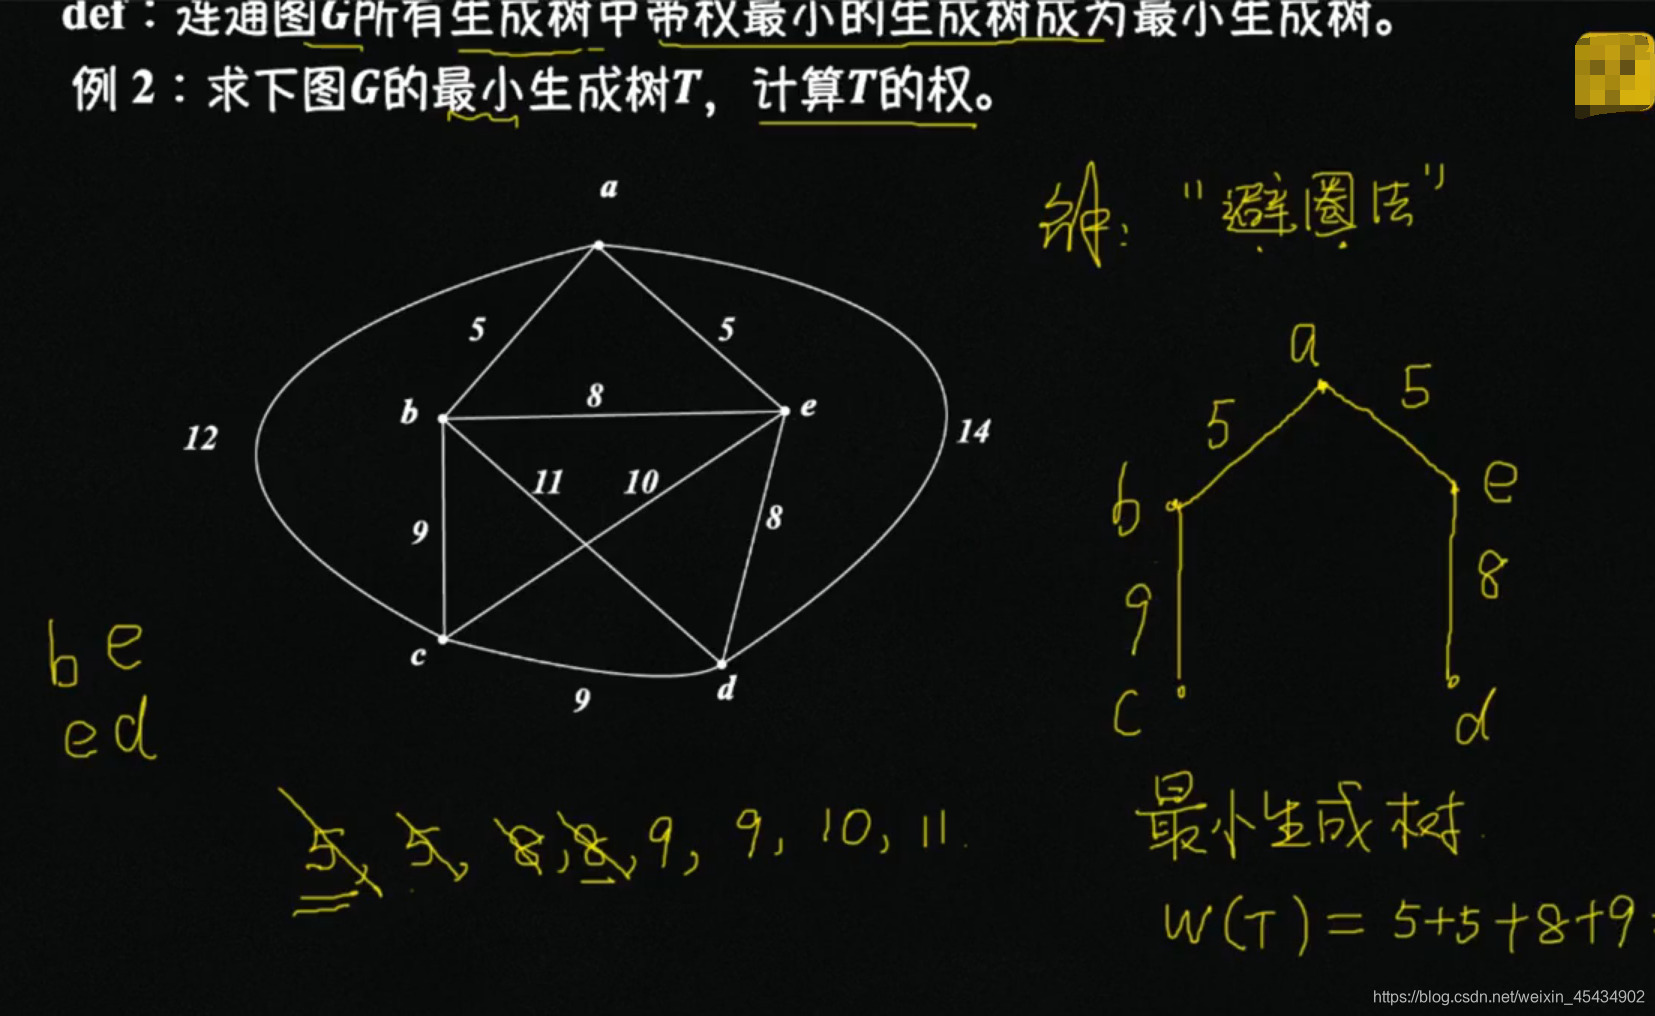 def：连通图G所有生成树中带权最小的生成树成为最小生成树。
例 2：求下图G的最小生成树T，计算T的权。
解： “避圈法”
a
5
5
b
8
e
12
14
11
10
9
8
c
d
9
a
5
5
b
e
9
8
c
d
b e
e d
5, 5, 8, 8, 9, 9, 10, 11
最小生成树
W(T) = 5+5+8+9
https://blog.csdn.net/weixin_45434902